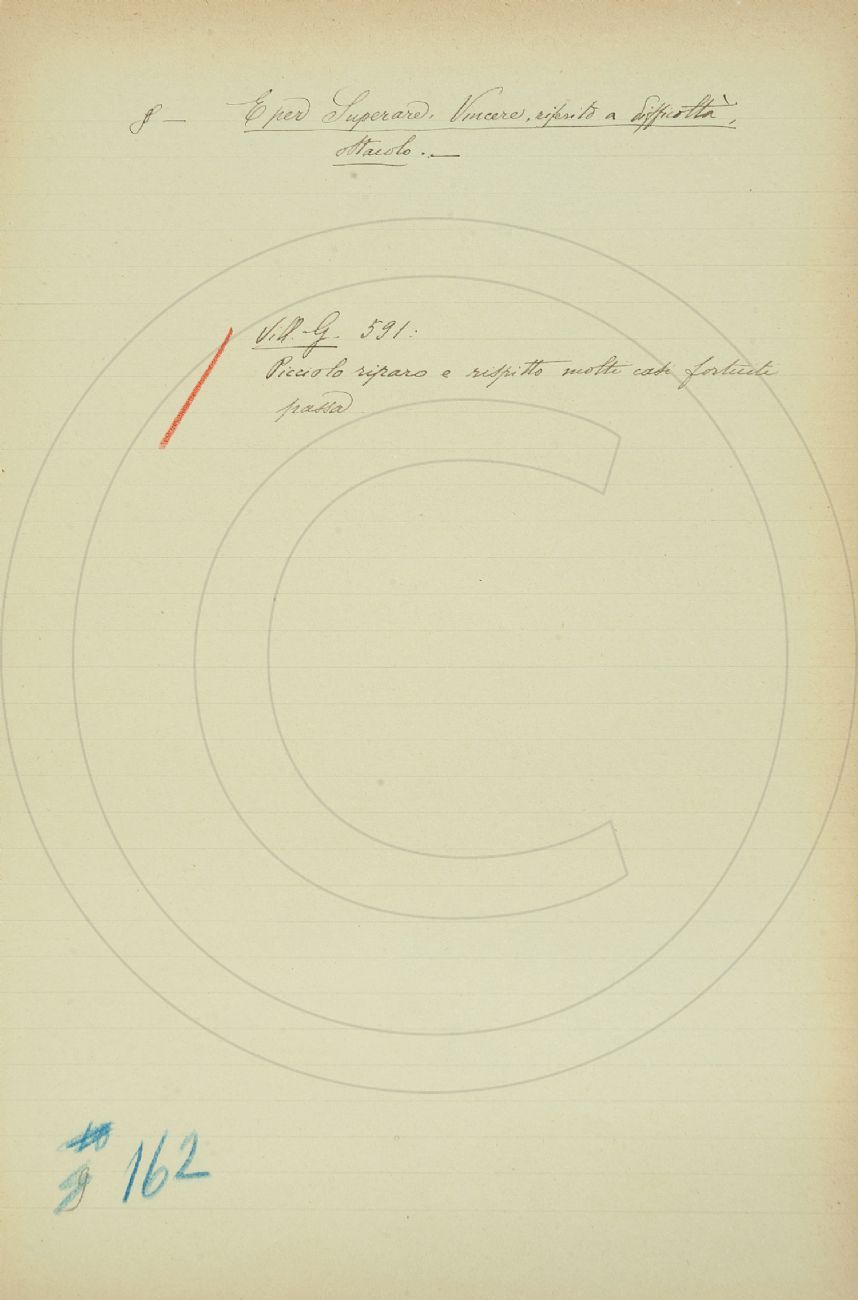 § — E per Superare, Vincere, riferito a difficoltà,
ostacolo. —
Vill. G. 591:
Picciolo riparo e rispitto molti casi fortuiti
passa
162